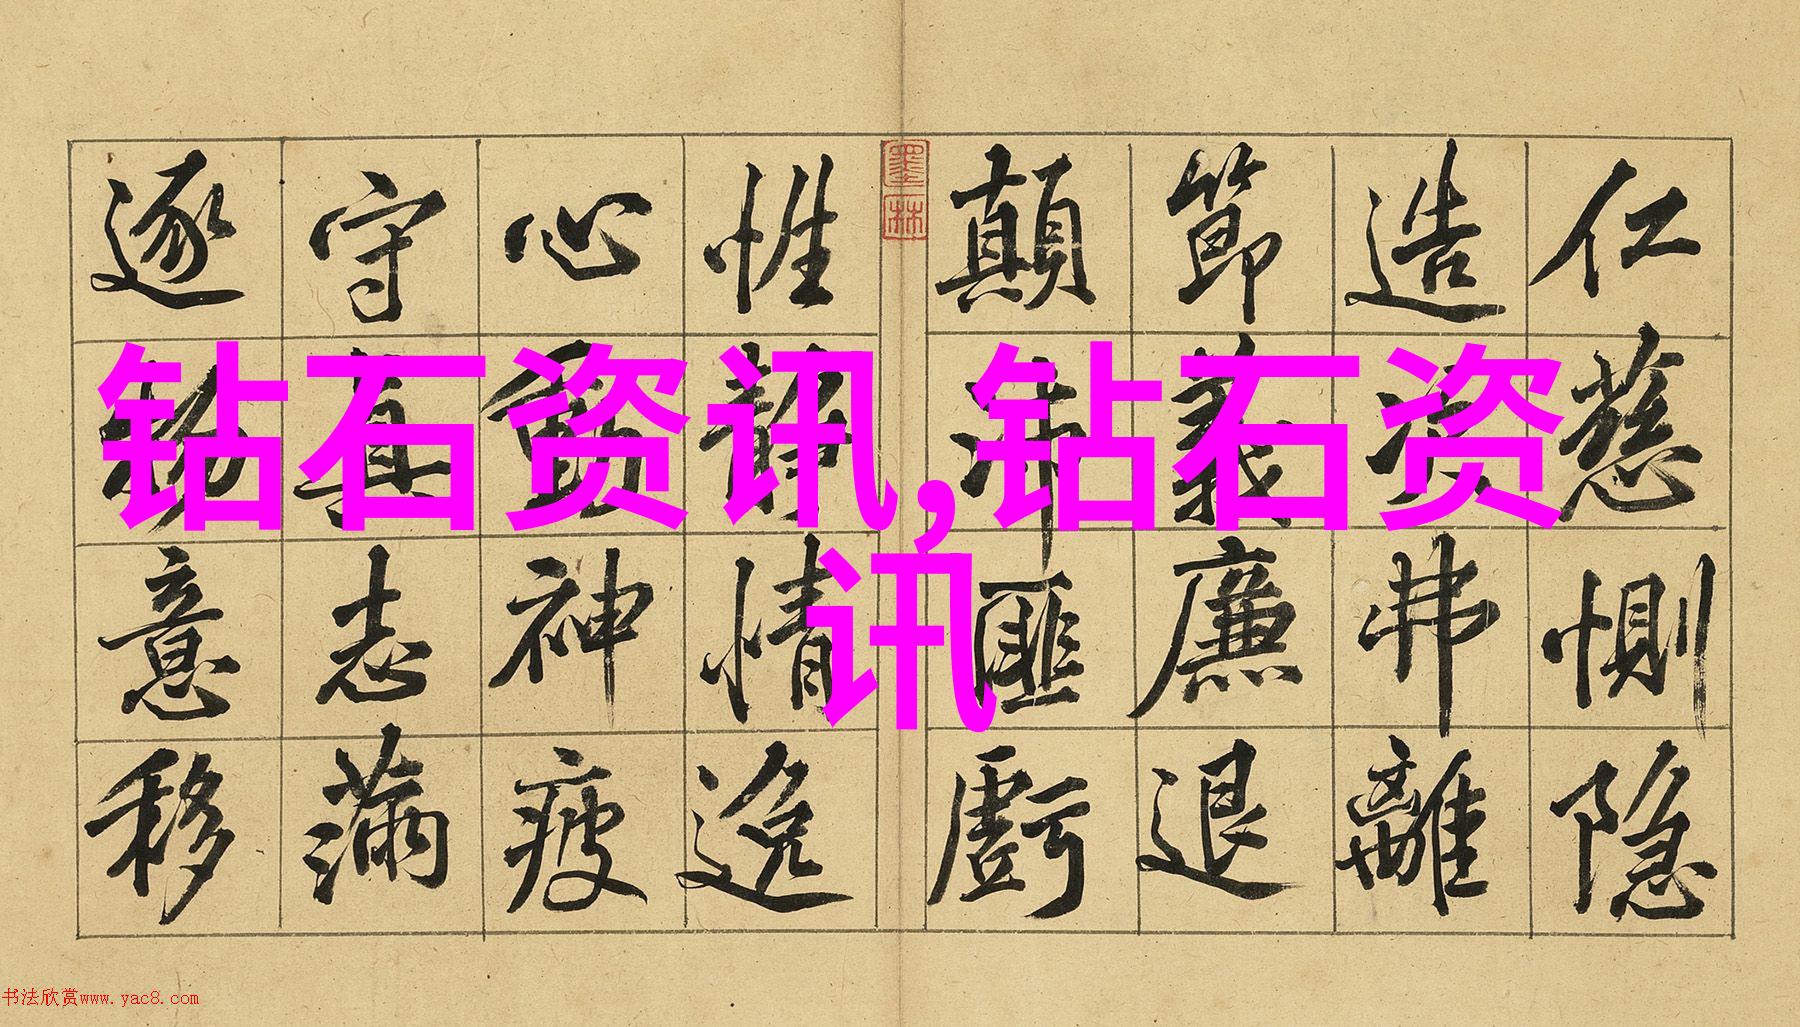 钻石资讯,钻石资
讯
仁慈惻隐
造次弗離
節義廉退
顛沛匪虧
墨林
性靜情逸
心動神疲
守真志滿
逐物意移
书法欣赏www.yac8.com